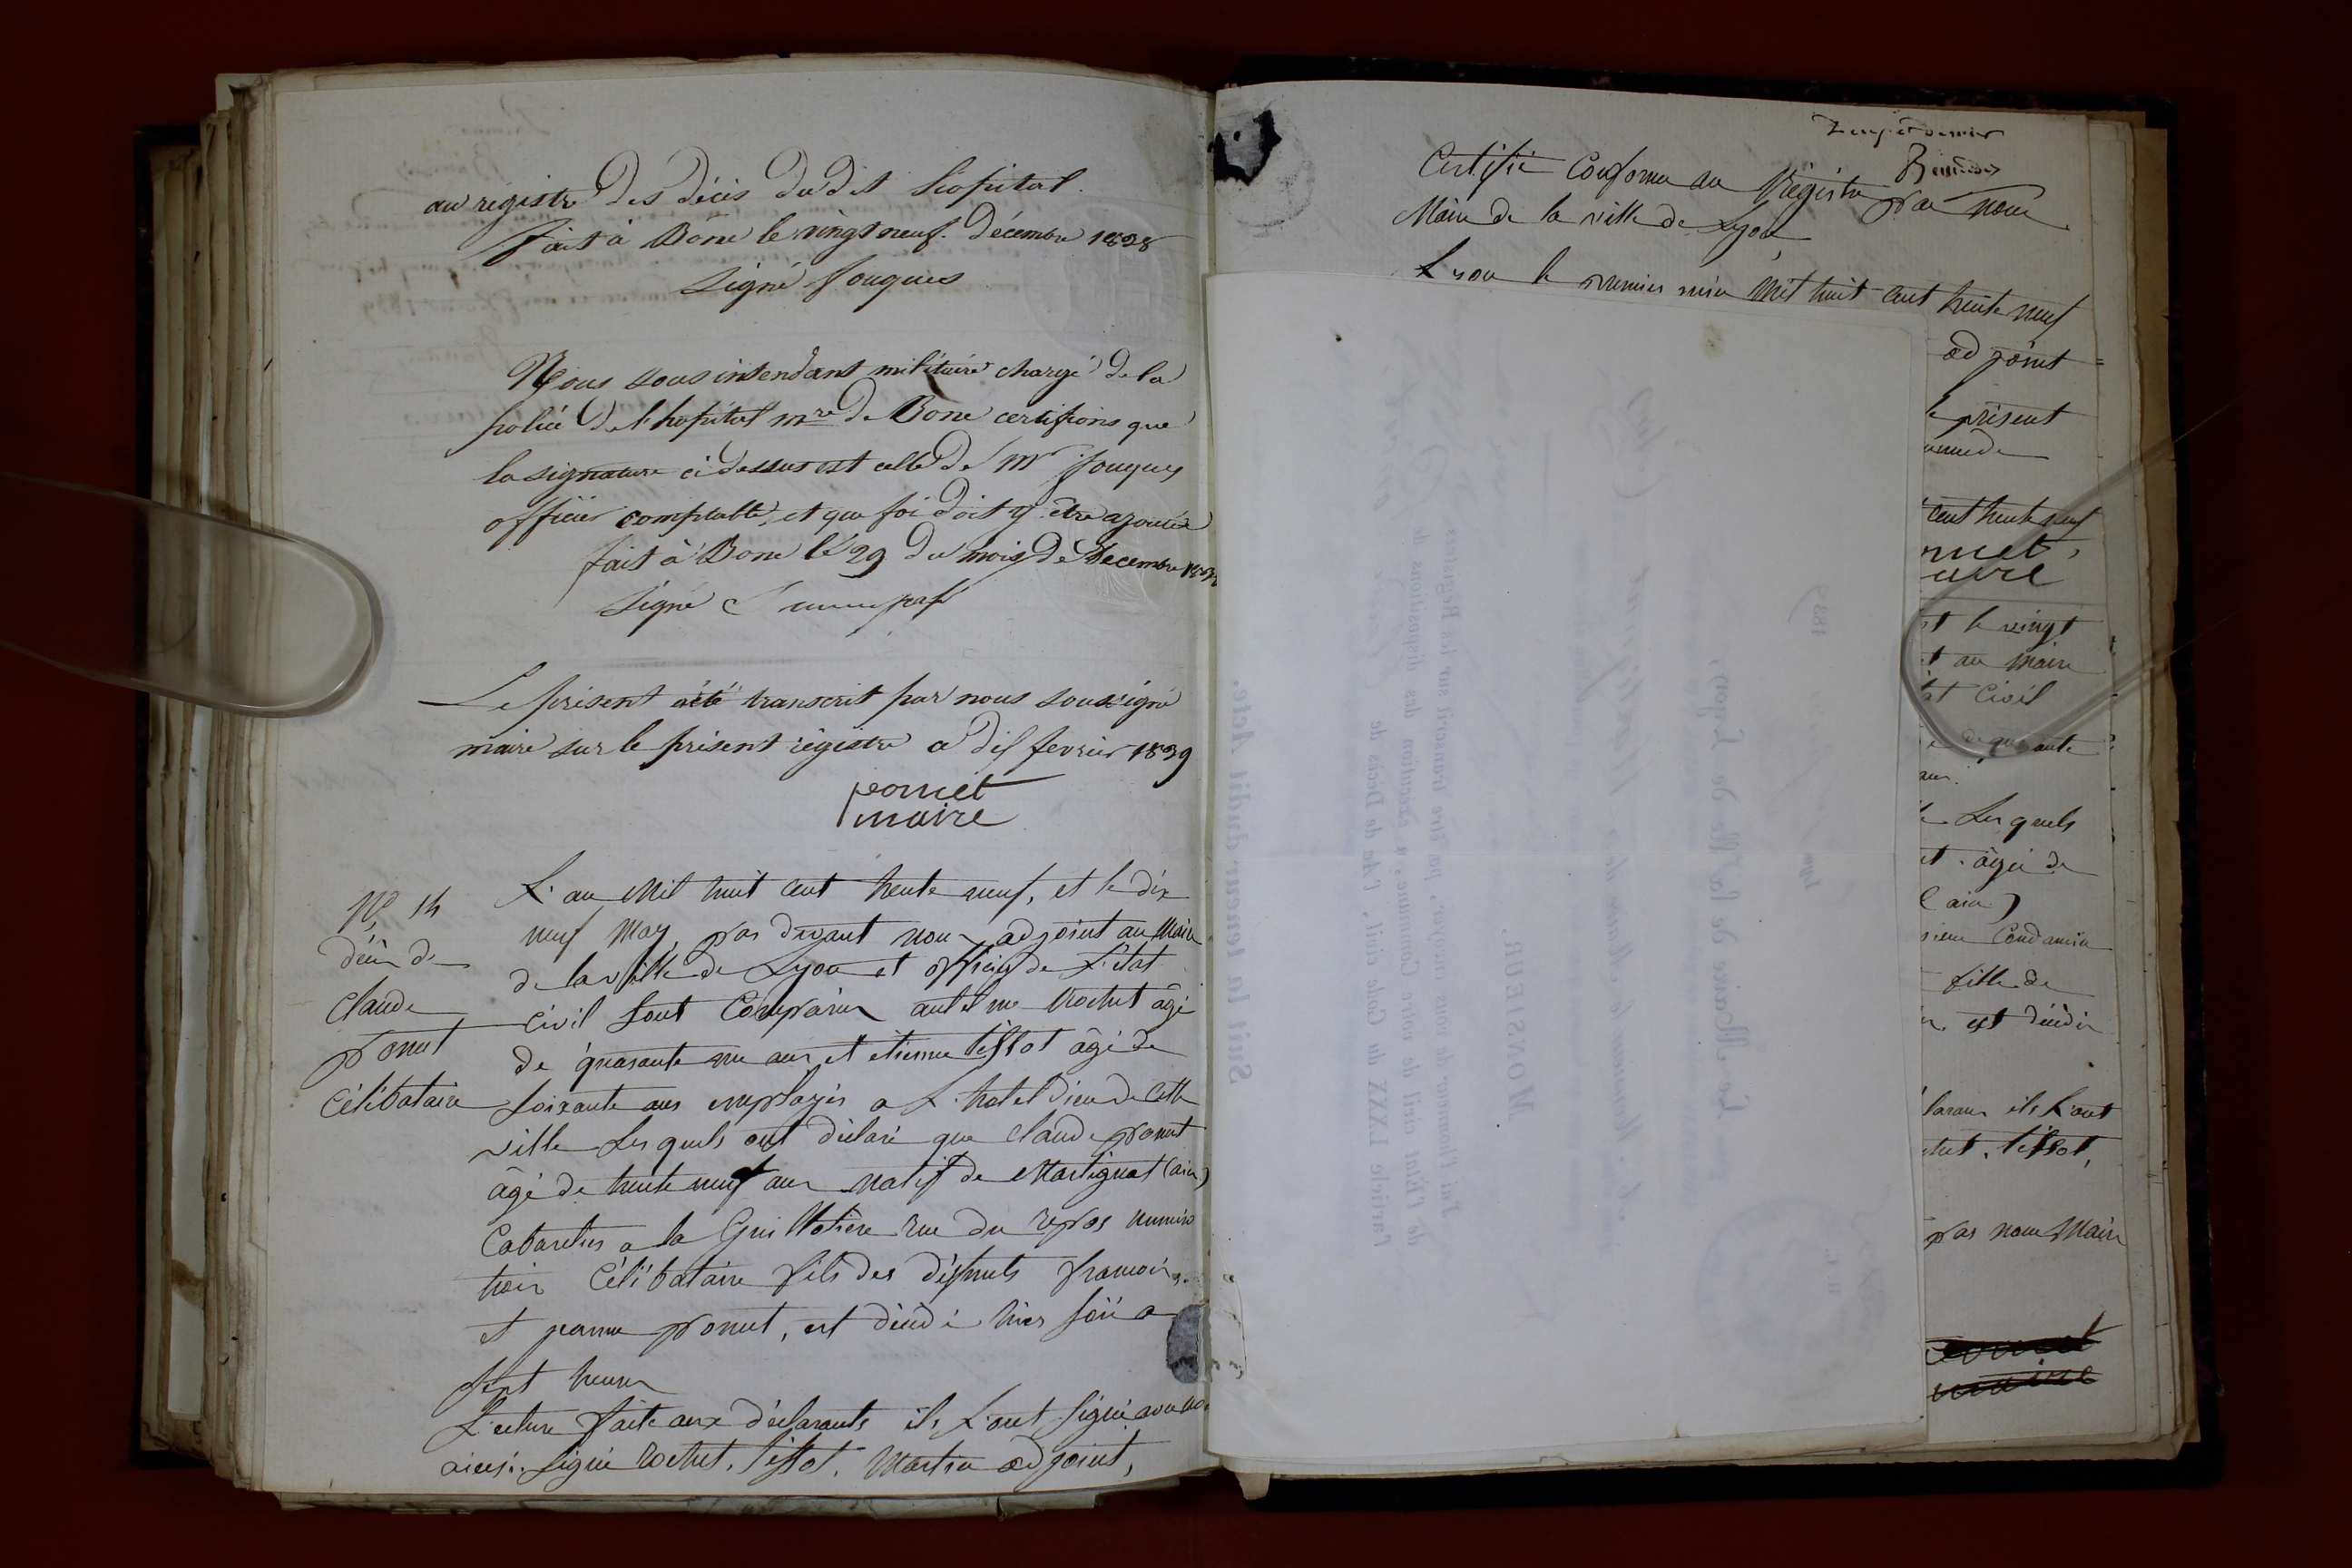 au registre des décès du dit hopital.
fait à Bone le vingt neuf décembre 1838
signé fouques
Nous sous intendant militaire chargé de la
police de l'hopital mre de Bone certifions que
la signature ci dessus est celle de Mr fouques
officier comptable, et que foi doit y être ajoutée
fait à Bone le 29 du mois de Decembre
signé
Le présent été transcrit par nous soussigné
maire sur le présent régistre a dix fevrier 1839
ponct
maire
No 14
décès de
Claude
ponct
Célibataire
L'an Mil huit cent trente neuf, et le dix
neuf May, par devant nous adjoint au Maire
de la ville de Lyon et officier de L'état
civil sont Comparus antelme Rochet âgé
de quarante un ans et etienne tissot âgé de
soixante ans employés a L'hotel Dieu de cette
ville Lesquels ont déclaré que Claude ponct
âgé de trente neuf ans natif de Martignat (ain)
Cabaretier a la Guillotière rue du repos numéro
trois Célibataire fils des défunts françois
et jeanne ponct, est décédé hier soir a
sept heures
Lecture faite aux déclarants ils L'ont signé avec nous
ainsi. signé Rochet. tissot. Martin adjoint,
Certifié Conforme au Régistre par nous
Maire de la ville de Lyon
Lyon le premier juin Mil huit cent trente neuf
adjoint
le présent
cent trente neuf
maire
et le vingt
t au Maire
at Civil
de quarante
Lesquels
et. âgé de
(ain)
Condamin
fille de
est décédée
ils L'ont
tissot,
par nous Maire
maire
Suit la teneur dudit Acte.
l'article LXXX du Code civil, l'Acte de Décès de
de l'État civil de votre Commune, en exécution des dispositions de
J'ai l'honneur de vous envoyer, pour être transcrit sur les Registres
MONSIEUR,
La Mairie de la Ville de Lyon,
Lyon,
183